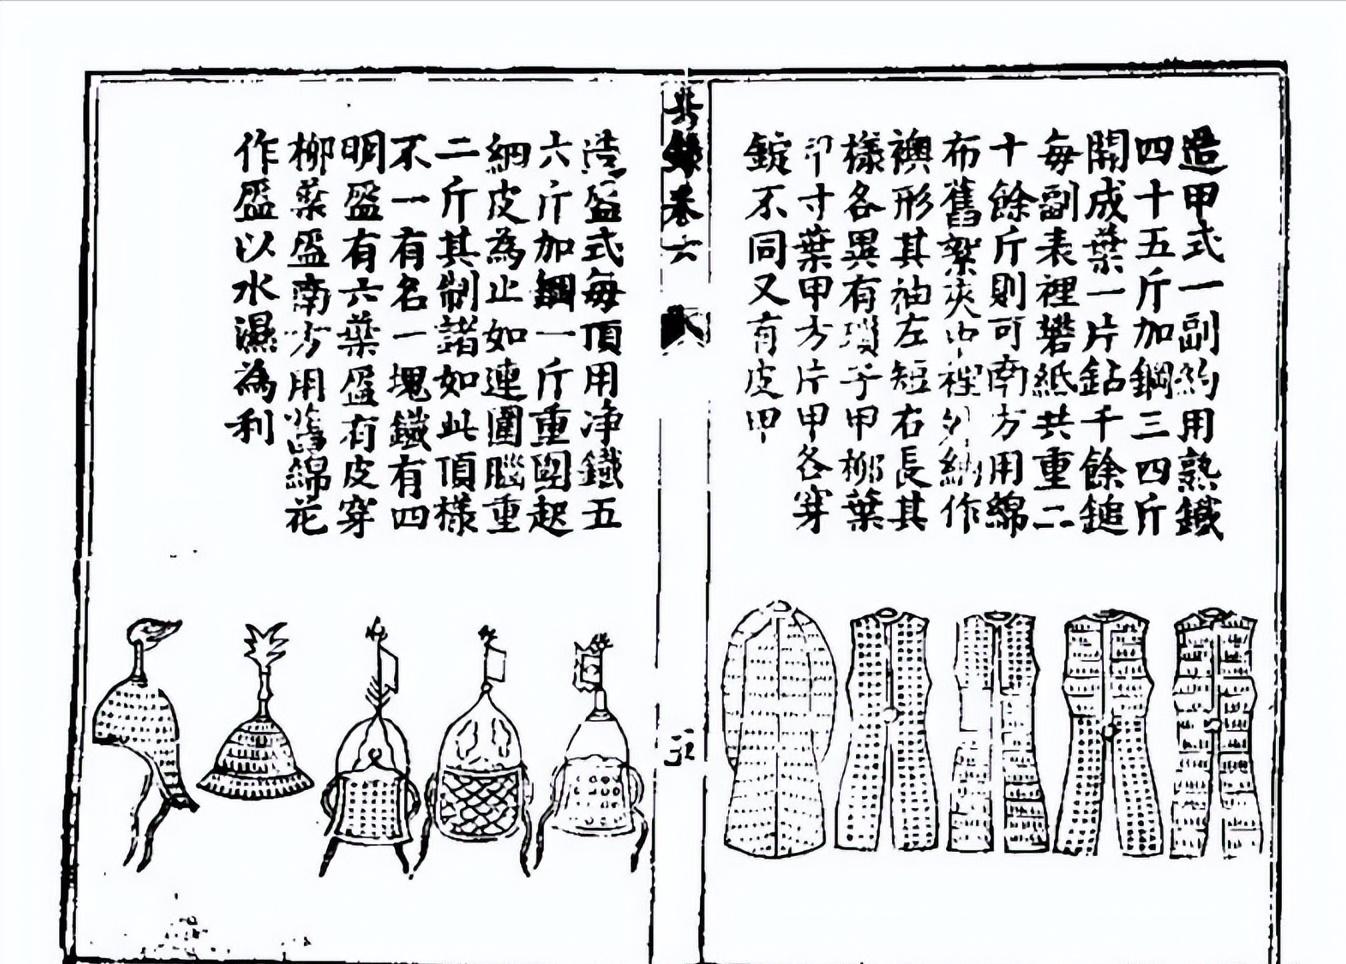 造甲式一副約用熟鐵
四十五斤加鋼三四斤
開成葉一片鉆千餘鎚
每副表裡礬紙共重二
十餘斤則可南方用綿
布舊絮夾 裡外納作
襖形其袖左短右長其
樣各異有 子甲柳葉
甲寸葉甲方片甲各穿
錠不同又有皮甲
兵錄卷六
造盔式每頂用净鐵五
六斤加鋼一斤重圍起
綱皮為止如連圍腦重
二斤其制諸如此頂樣
不一有名一塊鐵有四
明盔有六葉盔有皮穿
柳葉盔南方用舊綿花
作盔以水濕為利